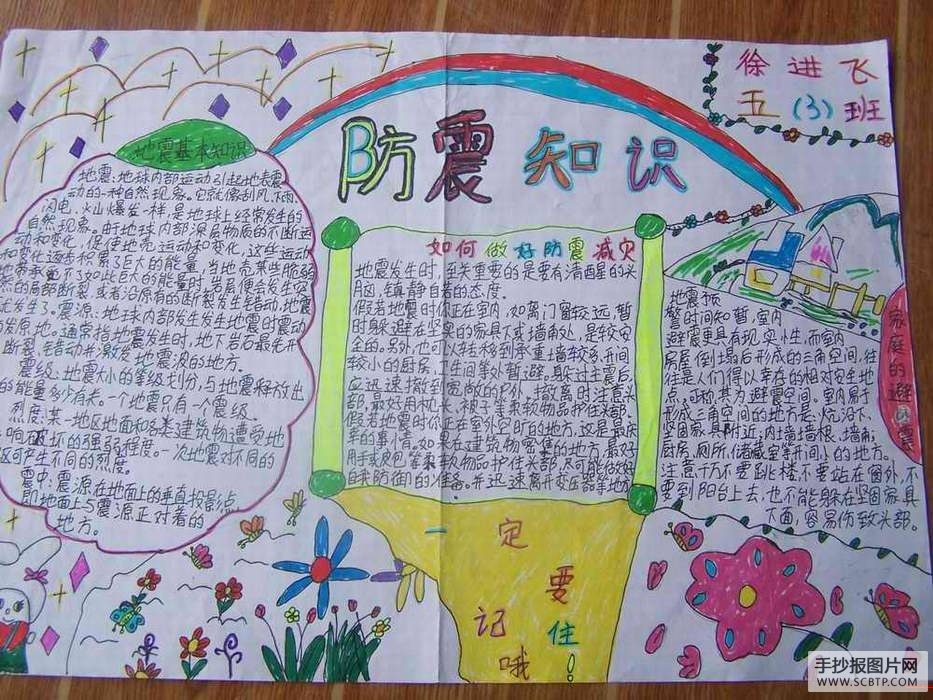 徐进飞
五(3)班
防震知识
地震基本知识
地震:地球内部运动引起地表震
动的一种自然现象。它就像刮风、下雨、
闪电、火山爆发一样,是地球上经常发生的
自然现象。由于地球内部深层物质的不断运
动和变化,促使地壳运动和变化,这些运动
和变化逐步积累了巨大的能量,当地壳某些脆弱
承受不了如此巨大的能量时,岩层便会发生突
然的局部断裂,或者沿原有的断裂发生错动,地震
就发生了。震源:地球内部发生发生地震时震动
的发源地。通常指地震发生时,地下岩石最先开
断裂、错动并激发地震波的地方。
震级:地震大小的等级划分,与地震释放出
的能量多少有关。一个地震只有一个震级。
烈度:某一地区地面和各类建筑物遭受地
影响破坏的强弱程度。一次地震对不同的
区可产生不同的烈度。
震中:震源在地面上的垂直投影点,
即地面上与震源正对着的
地方。
如何做好防震减灾
地震发生时,至关重要的是要有清醒的头
脑,镇静自若的态度。
假若地震时你正在室内,如离门窗较远,暂
时躲避在坚实的家具下或墙角处,是较安
全的。另外,也可以转移到承重墙较多、开间
较小的厨房、卫生间等处暂避。躲过主震后,
应迅速撤到宽敞的户外。撤离时注意头
部,最好用枕头、被子等柔软物品护住头部。
假若地震时你正在室外空旷的地方,这是最庆
幸的事情,如果在建筑物密集的地方,最好
用手或皮包等柔软物品护住头部,尽可能做好
自我防御的准备。并迅速离开变压器等地方
地震预
警时间短暂,室内
避震更具有现实性,而室内
房屋倒塌后形成的三角空间,往
往是人们得以幸存的相对安全地
点,可称其为避震空间。室内易于
形成三角空间的地方是:炕沿下、
坚固家具附近;内墙墙根、墙角;
厨房、厕所、储藏室等开间小的地方。
注意:千万不要跳楼,不要站在窗外,不
要到阳台上去,也不能躲在坚固家具
下面,容易伤致头部。
家庭的避震
一定
要
记住!
哦
手抄报图片网
WWW.SCBTP.COM